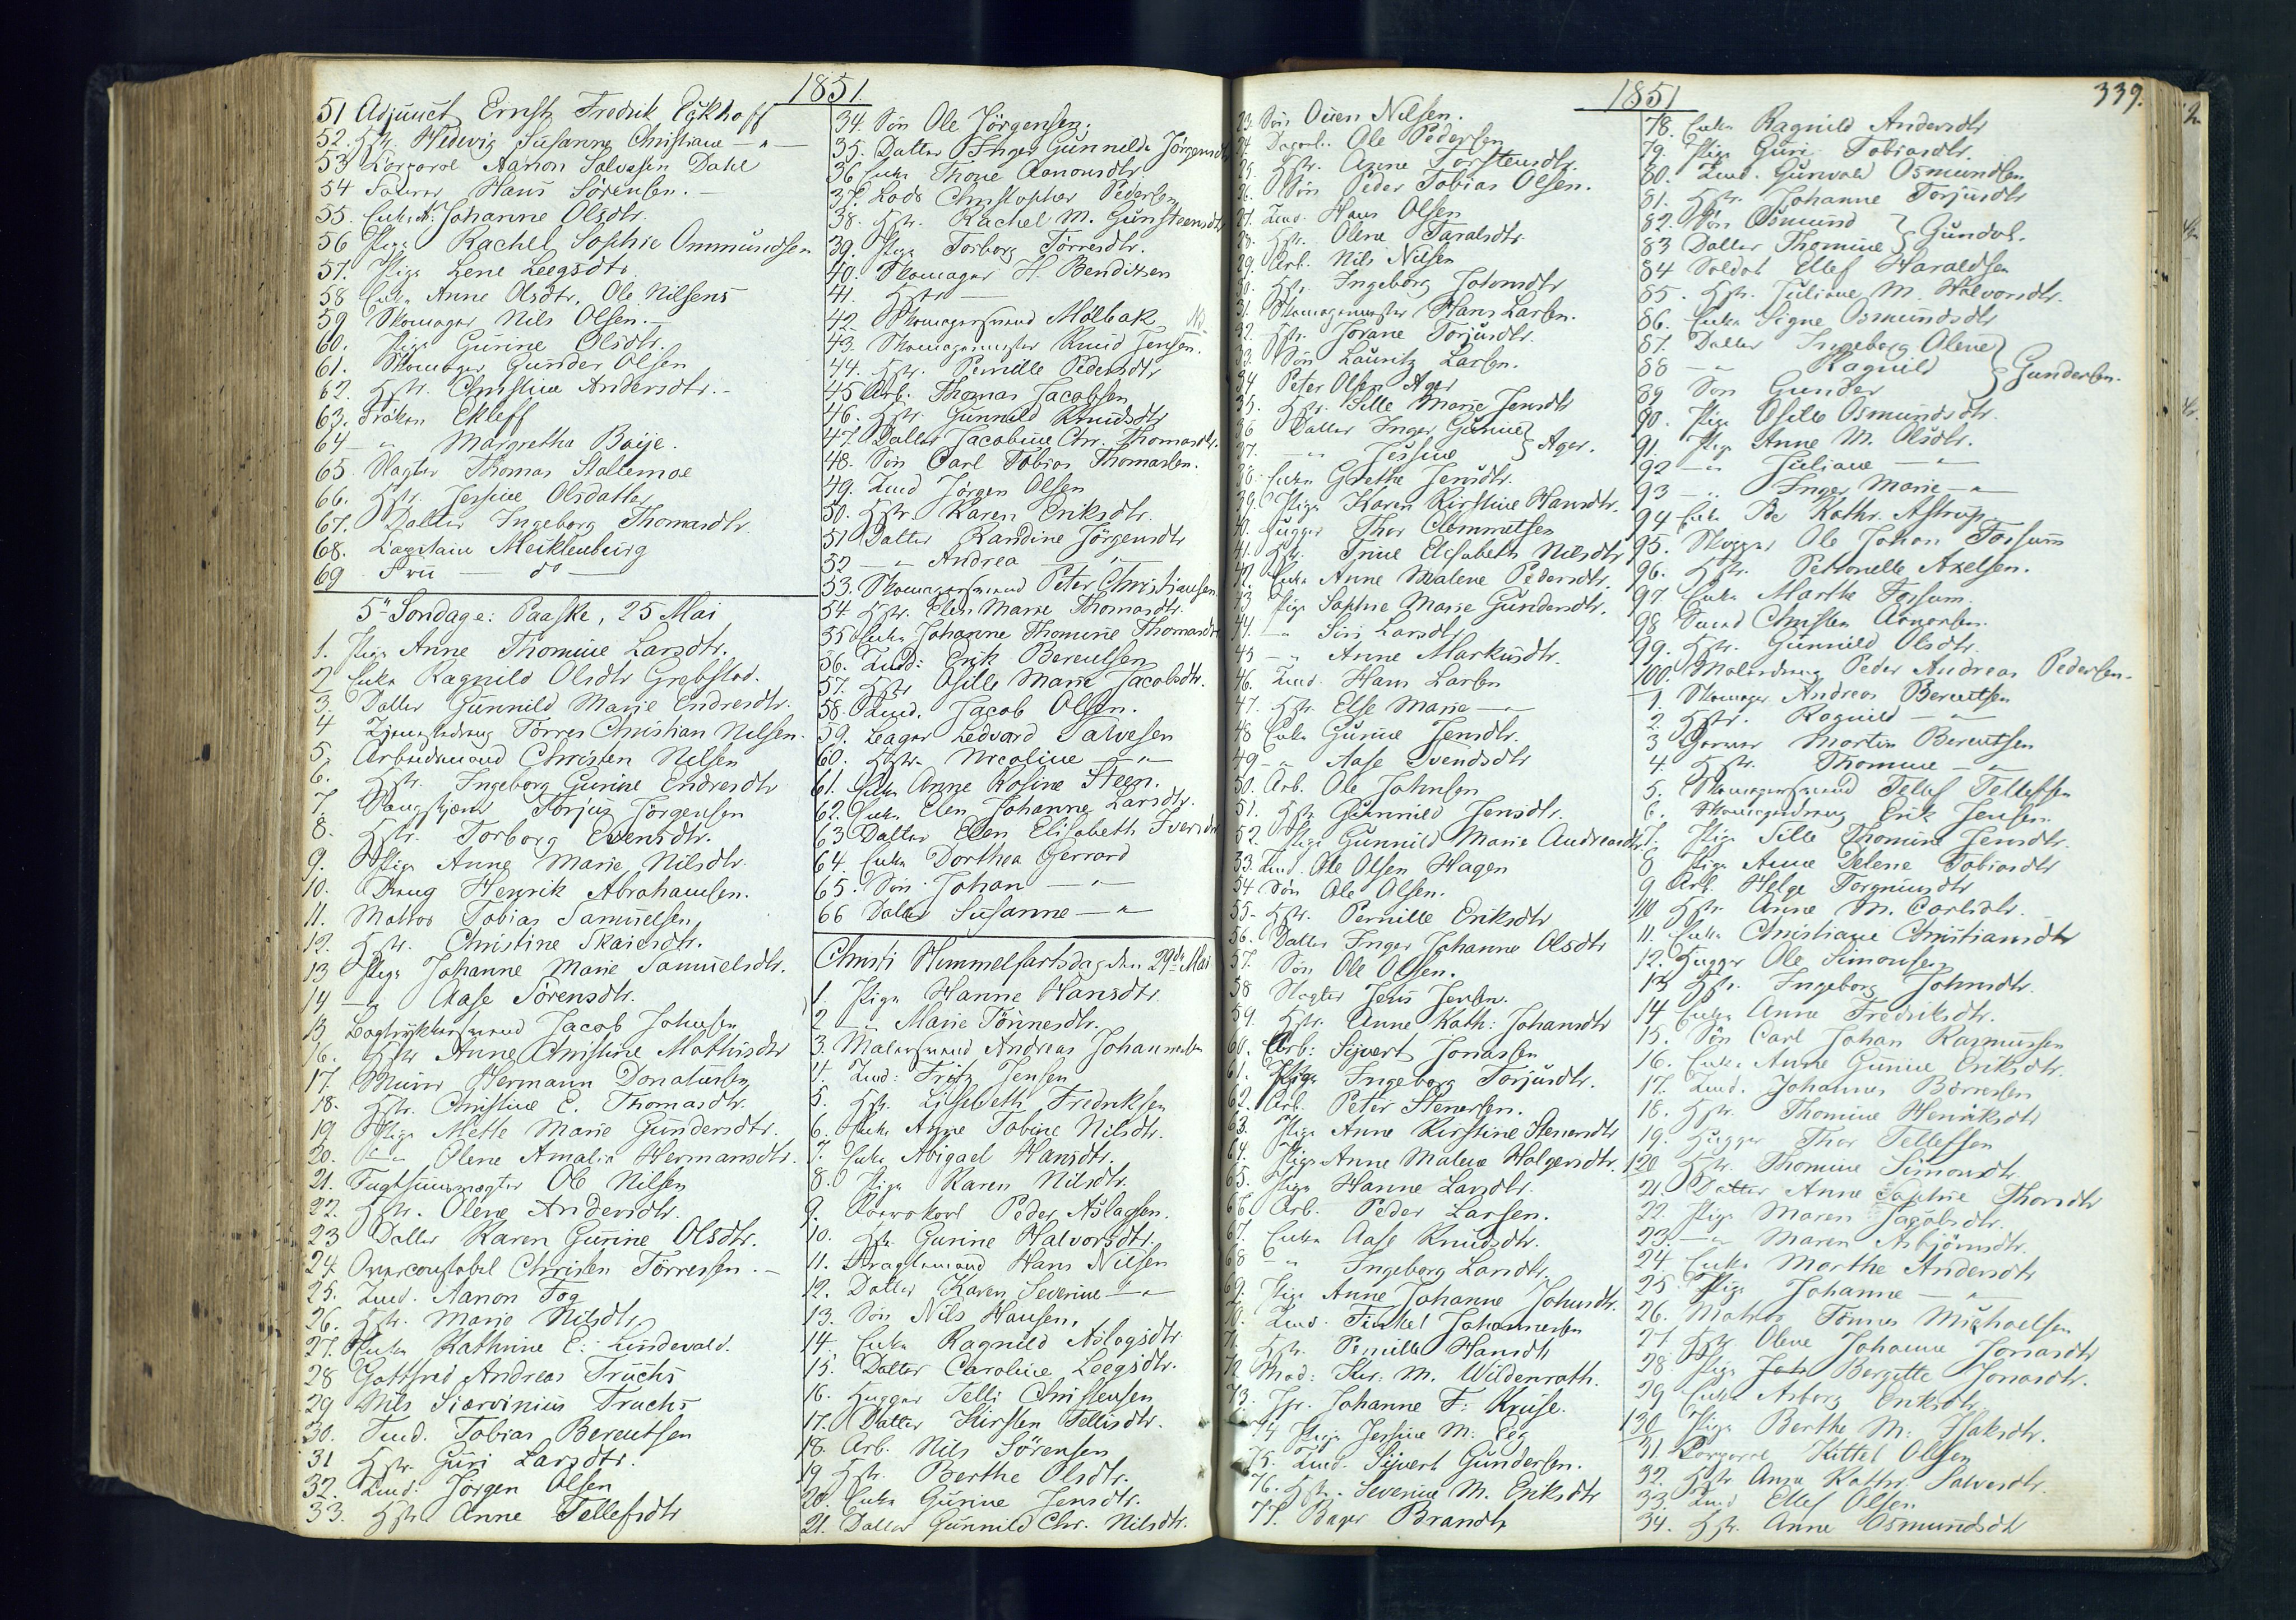 1851.
51 Adjunct Ernst Fredrik Eckhoff
52. Hstr. Hedevig Susanne Christiane — " —
53 Corporal Aanon Salvesen Dahl
54 Hans Sörensen. —
55. Enke Johanne Olsdtr.
56 Pige Rachel Sophie Ommundsen
57. Pige Lene Leegsdtr.
58 Enke Anne Olsdtr. Ole Nilsens
59 Skomager Nils Olsen. —
60. Pige Gurine Olsdtr.
61. Skomager Gunder Olsen
62. Hstr. Christine Andersdtr. —
63. Fröken Ekleff
64 — " Margretha Boije.
65 Slagter Thomas Stallemoe
66. Hstr. Jessine Olsdatter
67. Datter Ingeborg Thomasdtr.
68. Capitain Meiklenburg
69 Fru — do —
5te Söndag e: Paaske, 25 Mai
1. Pige Anne Thomine Larsdtr.
2 Enke Ragnild Olsdtr Grebstad.
3. Datter Gunnild Marie Endresdtr.
4 Törres Christian Nilsen.
5. Arbeidsmand Christen Nilsen
6. Hstr. Ingeborg Gurine Endresdtr
7. Torjus Jörgensen
8. Hstr. Torborg Evensdtr.
9. Pige Anne Marie Nilsdtr.
10. Dreng Henrik Abrahamsen.
11. Matros Tobias Samuelsen
12. Hstr. Christine Skaiesdtr.
13 Pige Johanne Marie Samuelsdtr.
14 — " Aase Sörensdtr.
15 Bogtrykkersvend Jacob Johnsen
16. Hstr Anne Christine Mathisdtr
17. Murer Hermann Donatussen
18. Hstr. Christine E. Thomasdtr.
19 Pige Mette Marie Gundersdtr.
20. — " Olene Amalia Hermansdtr.
21. Ole Nilsen
22. Hstr. Olene Andersdtr.
23 Datter Karen Gurine Olsdtr.
24. Overconstabel Christen Törresen. —
25. Lmd. Aanon Fog
26. Hstr. Marie Nilsdtr.
27. Enke Kathrine E: Lindevald.
28 Gottfred Andreas Fruchs
29 Nils Siervinius Fruchs
30. Lmd. Tobias Berentsen
31 Hstr. Guri Larsdtr.
32. Lmd: Jörgen Olsen
33. Hstr Anne Tellefsdtr
34. Sön Ole Jörgensen.
35. Datter Inger Gunnelde Jörgensdtr
36 Enke Thone Aanonsdtr.
37. Lods Christopher Pedersen
38. Hstr. Rachel M. Gunsteensdtr
39. Pige Torborg Törresdtr.
40. Skomager H. Bendixen
41. Hstr —
42. Skomagersvend Mölbak
43. Skomagermester Knud Jensen.
44. Hstr. Pernille Pedersdtr
45 Arb. Thomas Jacobsen
46. Hstr. Gunnild Knudsdtr
47. Datter Jacobine Chr. Thomasdtr.
48. Sön Carl Tobias Thomassen.
49. Lmd Jörgen Olsen
50. Hstr. Karen Eriksdtr.
51 Datter Randine Jörgensdtr
52 — " Andrea — " —
53. Skomagersvend Peter Christiansen
54 Hstr. Elen Marie Thomasdtr.
55 Enke Johanne Thomine Thomasdtr
56. Lmd: Erik Berentsen
57. Hstr Osille Marie Jacobsdtr.
58. Lmd. Jacob Olsen.
59. Ledvard Salvesen
60. Hstr. Nicoline — " —
61. Enke Anne Rosine Steen.
62. Enke Elen Johanne Larsdtr.
63 Datter Elen Elisabeth Iversdtr
64. Enke Dorthea Gerrard
65. Sön Johan — " —
66 Datter Susanne — " —
Christi Himmelfartsdag den 29de Mai
1. Pige Hanne Hansdtr.
2 — " Marie Tönnesdtr.
3. Malersvend Andreas Johannesen
4. Lmd: Fritz Jensen
5. Hstr. Lisebeth Fredriksen
6. Enke Anne Tobine Nilsdtr.
7. Enke Abigael Hansdtr.
8. Pige Karen Nilsdtr.
9. Peder Aslagsen.
10. Hstr. Gurine Halvorsdtr.
11. Fragtemand Hans Nilsen
12. Datter Karen Severine — " —
13. Sön Nils Hansen.
14. Enke Ragnild Aslagsdtr
15. Datter Caroline Leegsdtr.
16. Hugger Telli Christensen
17. Datter Kirsten Tellisdtr.
18. Arb. Nils Sörensen
19 Hstr. Berthe Olsdtr.
20. Enke Gurine Jensdtr.
21. Datter Gunnild Chr. Nilsdtr.
1851
339.
23. Sön Ouen Nilsen.
24. Ole Pedersen
25. Hstr. Anne Torstensdtr.
26. Sön Peder Tobias Olsen.
27. Lmd. Hans Olsen
28. Hstr. Olene Taralsdtr.
29. Arb. Nils Nilsen
30. Hstr. Ingeborg Johnsdtr
31. Skomagermester Hans Larsen.
32. Hstr. Jorane Torjusdtr.
33. Sön Lauritz Larsen.
34 Peter Olsen Ager
35. Hstr. Sille Marie Jensdtr
36 Datter Inger Gurine } Ager.
37. — " Jessine
38. Enke Grethe Jensdtr.
39. Pige Karen Kirstine Hansdtr.
40. Hugger Thor Clemmetsen
41. Hstr. Trine Elisabeth Nilsdtr
42. Enke Anne Malene Pedersdtr.
43 Pige Sophie Marie Gundersdtr.
44. — " Siri Larsdtr
45 — " Anne Markusdtr.
46. Lmd. Hans Larsen
47. Hstr. Else Marie — " —
48 Enke Gurine Jensdtr.
49 — " Aase Svendsdtr
50. Arb. Ole Johnsen
51. Hstr Gunnild Jensdtr.
52. Pige Gunnild Marie Andreasdtr
53. Lmd. Ole Olsen Hagen
54 Sön Ole Olsen.
55. Hstr. Pernille Eriksdtr
56. Datter Inger Johanne Olsdtr
57. Sön Ole Olsen.
58 Slagter Jens Jensen.
59. Hstr. Anne Kath: Johansdtr
60. Arb: Sivert Jonassen
61. Pige Ingeborg Torjusdtr.
62. Arb. Peter Stenersen.
63. Pige Anne Kirstine Stenersdtr
64. Pige Anne Malene Holgersdtr.
65. Pige Hanne Larsdtr.
66 Arb. Peder Larsen.
67. Enke Aase Knudsdtr.
68 — " Ingeborg Larsdtr.
69. Pige Anne Johanne Johnsdtr.
70. Lmd. Tinkel Johannesen
71. Hstr. Pernille Hansdtr
72 Mad: Kur: M. Wildenrath.
73. Jfr. Johanne F: Kruse.
74 Pige Jessine M: Eeg
75. Lmd. Sivert Gundersen.
76. Hstr. Severine M. Eriksdtr
77. Bager Brandt
78. Enke Ragnild Andersdtr
79. Pige Guri Tobiasdtr.
80. Lmd. Gunvald Osmundsen
81. Hstr. Johanne Torjusdtr
82. Sön Osmund } Gundvs.
83 Datter Thomine
84 Soldat Ellef Haraldsen
85. Hstr. Juliane M. Halvorsdtr.
86. Enke Signe Osmundsdtr
87. Datter Ingeborg Olene
88 — " Ragnild } Gundersen.
89 Sön Gunder
90. Pige Osille Osmundsdtr.
91. Pige Anne M. Olsdtr.
92 — " Juliane — " —
93 — " Inger Marie — " —
94 Enke Kathr. Astrup
95. Ole Johan Fossum
96. Hstr. Petronelle Axelsen.
97. Enke Marthe Fossum.
98 Svend Christen Aanonsen.
99. Hstr. Gunnild Olsdtr.
100. Malerdreng Peder Andreas Pedersen.
1. Skomager Andreas Berentsen
2. Hstr. Ragnild — " —
3 Garver Morten Berentsen
4. Hstr. Thomine — " —
5. Skomagersvend Tellef Tellefsen
6. Skomagerdreng Erik Jensen
7. Pige Sille Thomine Jensdtr.
8 Pige Anne Delene Tobiasdtr
9 Arb. Helge Torgrimsdtr
110 Hstr. Anne M. Carlsdtr.
11. Enke Christiane Christiansdtr
12. Hugger Ole Simonsen
13 Hstr. Ingeborg Johnsdtr.
14 Enke Anne Fredriksdtr.
15. Sön Carl Johan Rasmussen
16. Enke Anne Gurine Eriksdtr.
17. Lmd. Johannes Börresen
18. Hstr. Thomine Henriksdtr
19. Hugger Thor Tellefsen
120 Hstr. Thomine Simonsdtr.
21. Datter Anne Sophie Thorsdtr
22. Pige Maren Jacobsdtr.
23. — " Maren Asbjörnsdtr.
24 Enke Marthe Andersdtr
25. Pige Johanne — " —
26. Matros Tönnes Michaelsen
27 Hstr. Olene Johanne Jonasdtr
28 Pige Bergitte Jonasdtr.
29 Enke Asborg Eriksdtr.
130 Pige Berthe M: Isaksdtr.
31 Corporal Kittel Olsen
32. Hstr Anne Kathr. Salvesdtr.
33. Lmd Ellef Olsen
34. Hstr. Anne Osmundsdtr